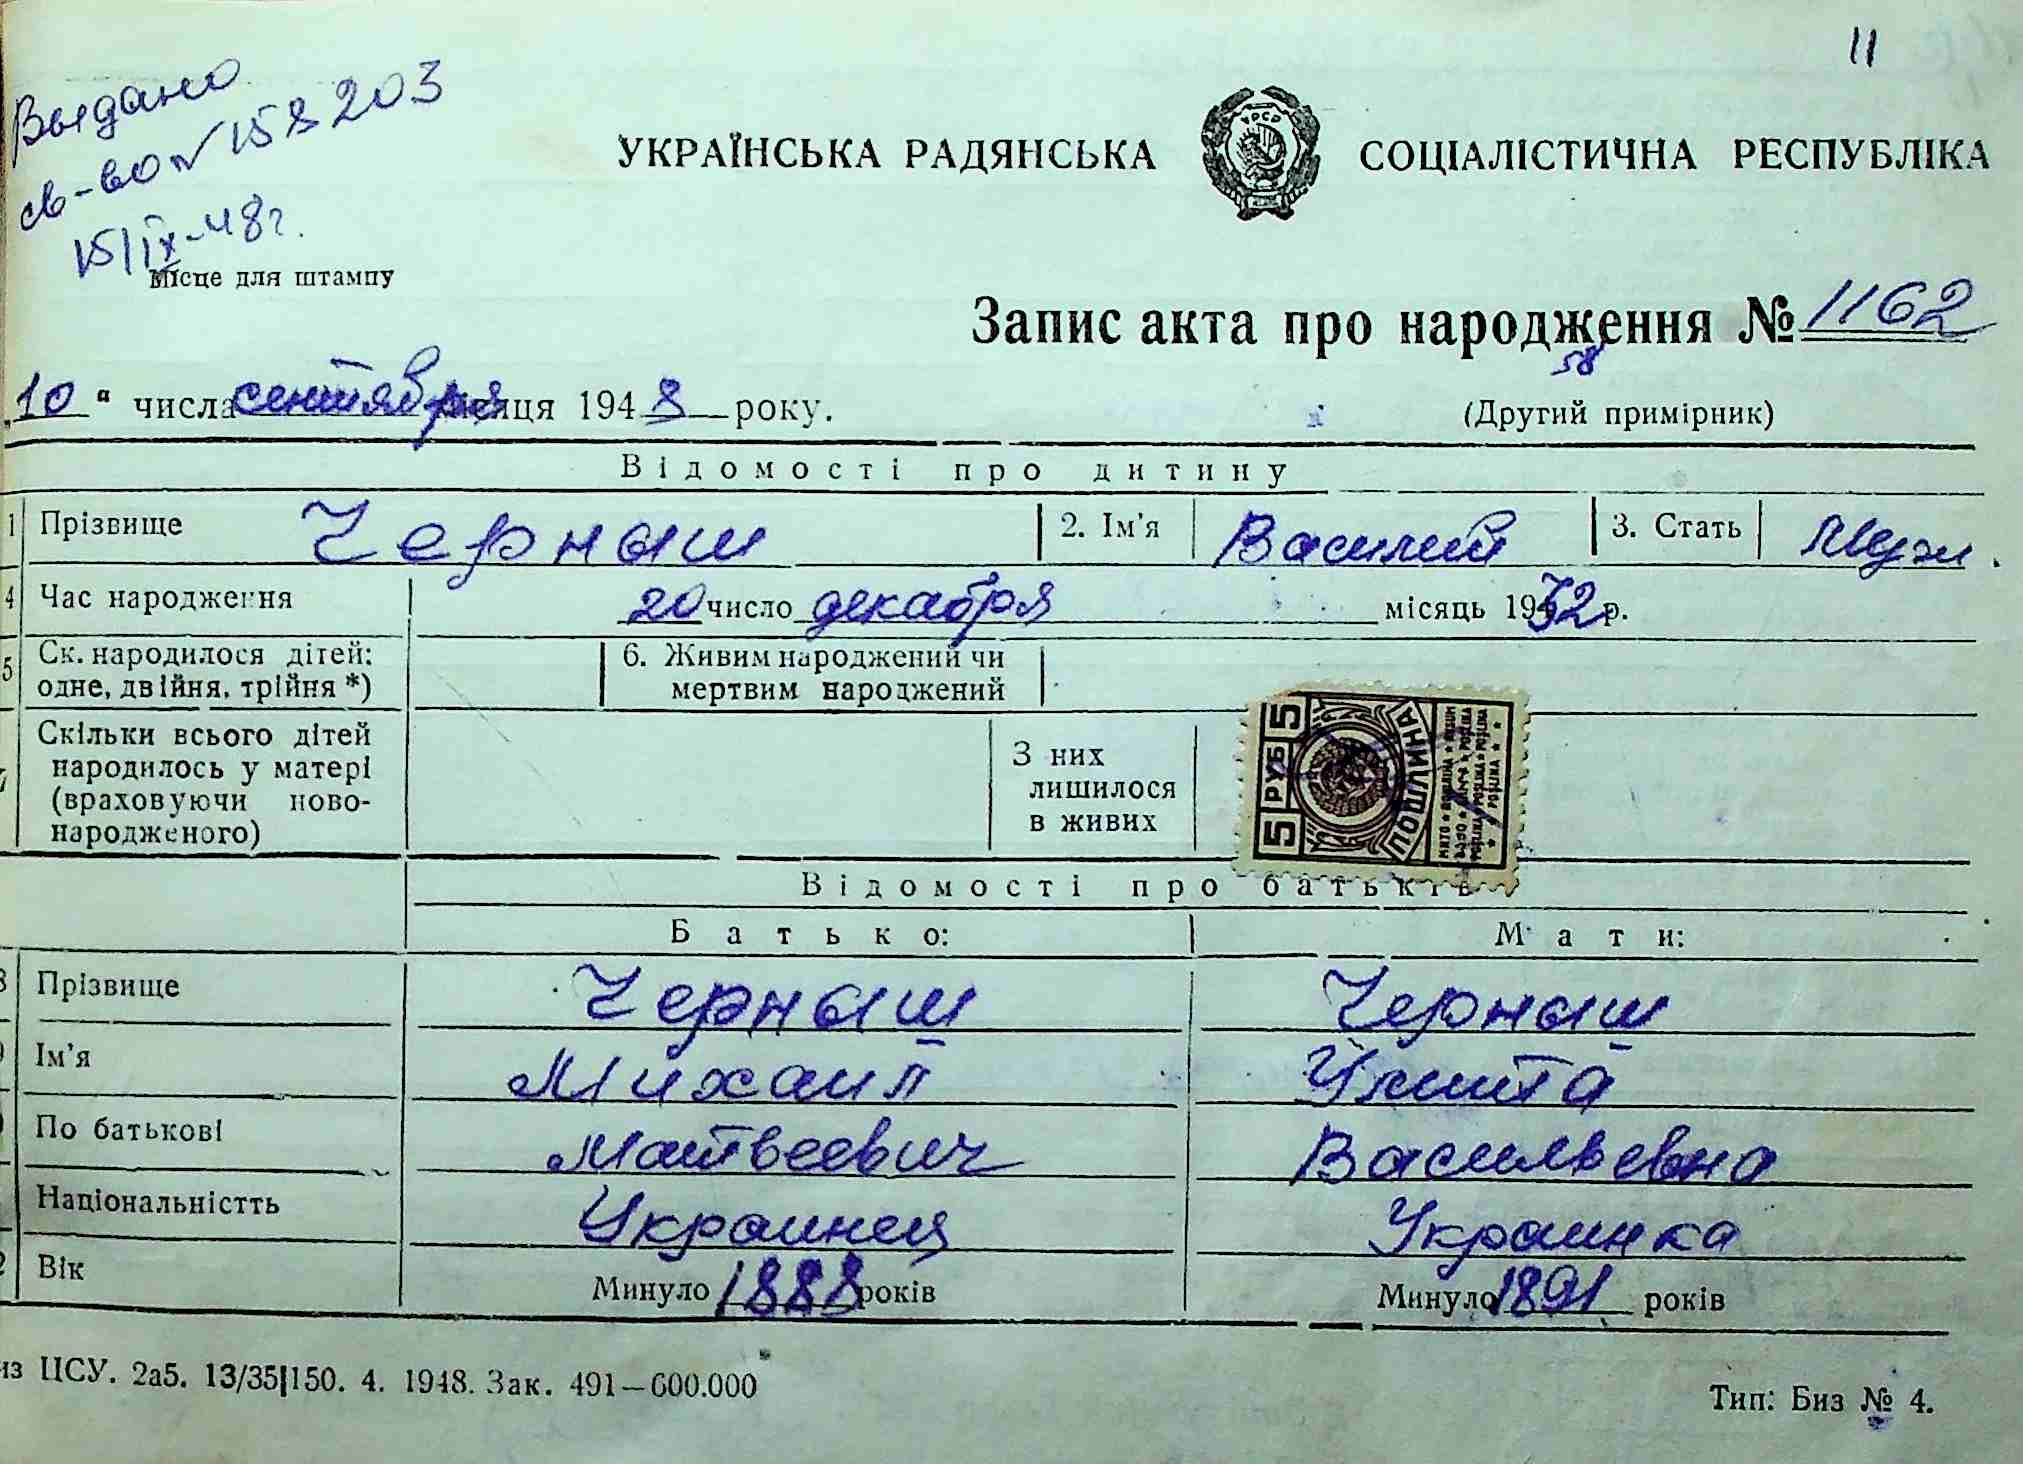 11
Выдано
св-во № 158203
15/IX-48г.
УКРАЇНСЬКА РАДЯНСЬКА СОЦІАЛІСТИЧНА РЕСПУБЛІКА
УРСР
Місце для штампу
Запис акта про народження № 1162
58
10 " числа сентября місяця 1948 року.
(Другий примірник)
Відомості про дитину
1 Прізвище Черныш 2. Ім'я Василий 3. Стать Муж.
4 Час народження 20 число декабря місяць 1932 р.
5 Ск. народилося дітей: одне, двійня, трійня *) 6. Живим народжений чи мертвим народжений
Скільки всього дітей народилось у матері (враховуючи ново-народженого) З них лишилося в живих
5 РУБ 5
ПОШЛИНА
Відомості про батьків
Батько: Мати:
8 Прізвище Черныш Черныш
Ім'я Михаил Улита
По батькові Матвеевич Васильевна
Національністть Украинец Украинка
2 Вік Минуло 1888 років Минуло 1891 років
из ЦСУ. 2а5. 13/35|150. 4. 1948. Зак. 491—600.000
Тип: Биз № 4.